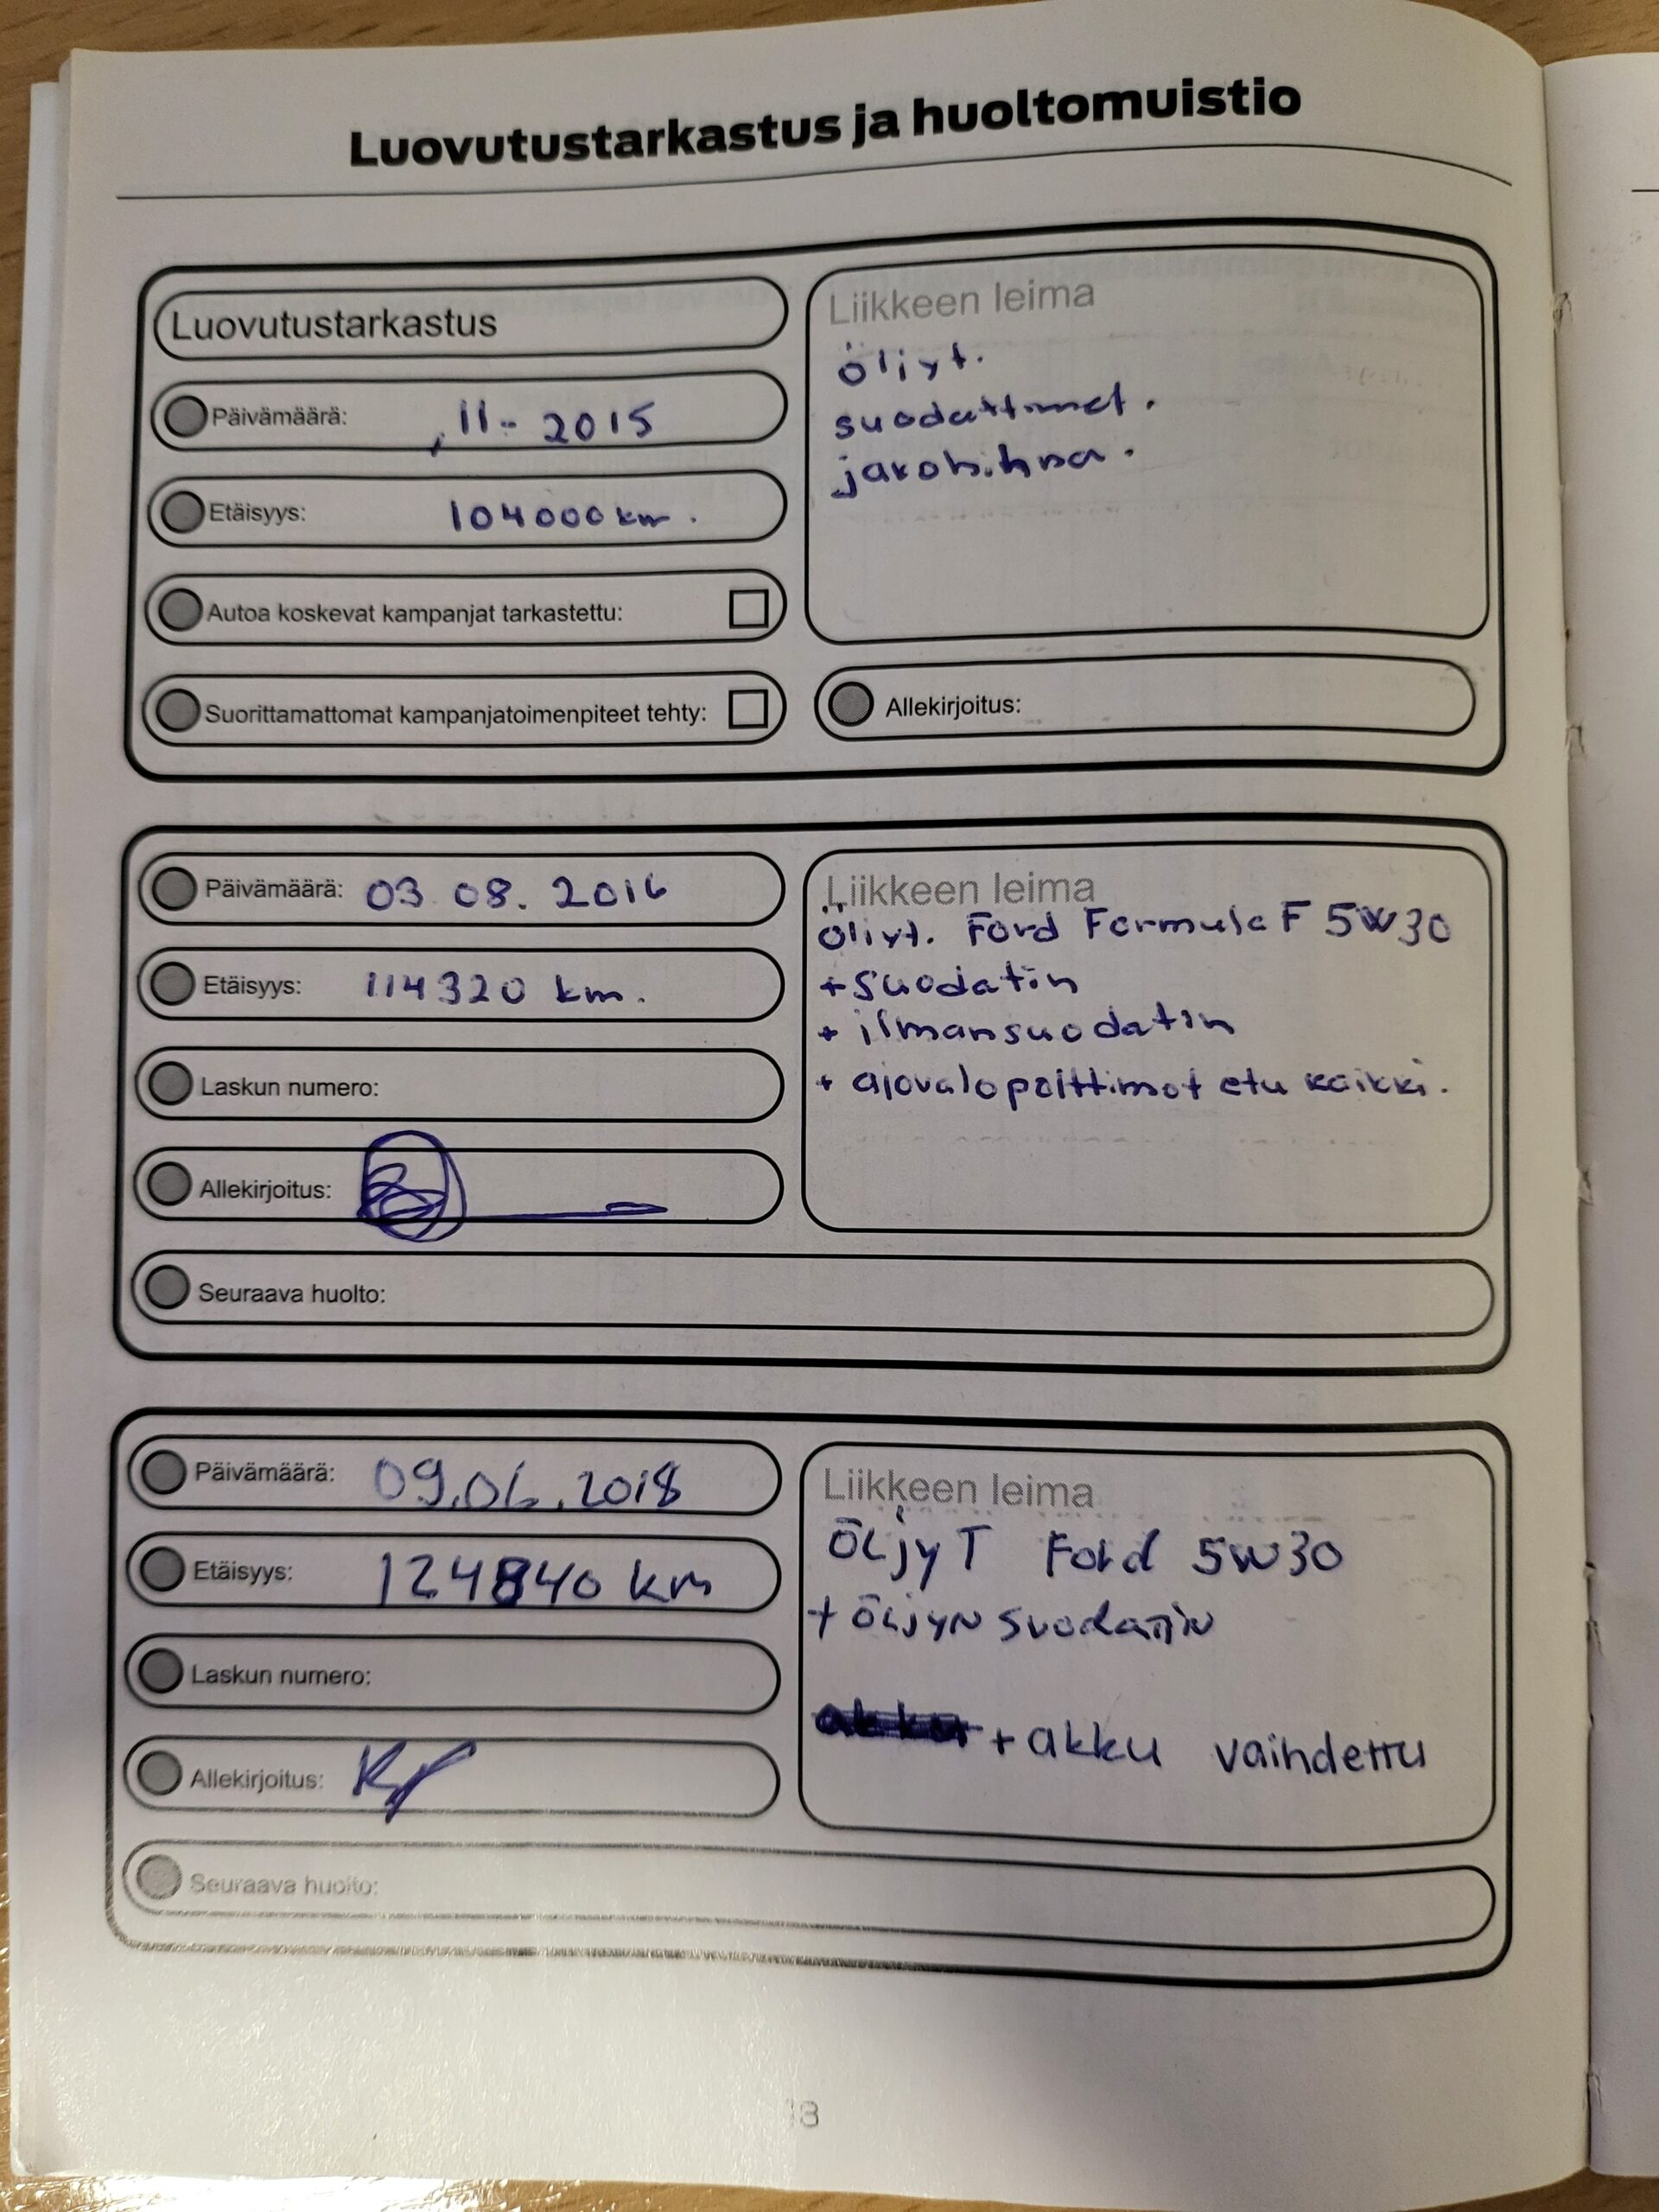 Luovutustarkastus ja huoltomuistio
Luovutustarkastus
Päivämäärä: 11- 2015
Etäisyys: 104000 km.
Autoa koskevat kampanjat tarkastettu:
Suorittamattomat kampanjatoimenpiteet tehty:
Liikkeen leima
öljyt.
suodattimet.
jakohihna.
Allekirjoitus:
Päivämäärä: 03 08. 2016
Etäisyys: 114320 km.
Laskun numero:
Allekirjoitus:
Liikkeen leima
Öljyt. Ford Formula F 5W30
+ suodatin
+ ilmansuodatin
+ ajovalopolttimot etu kaikki.
Seuraava huolto:
Päivämäärä: 09.06.2018
Etäisyys: 124840 km
Laskun numero:
Allekirjoitus:
Liikkeen leima
ÖLjyT Ford 5W30
+ ÖLjyN suodatin
+ akku vaihdettu
Seuraava huolto:
18